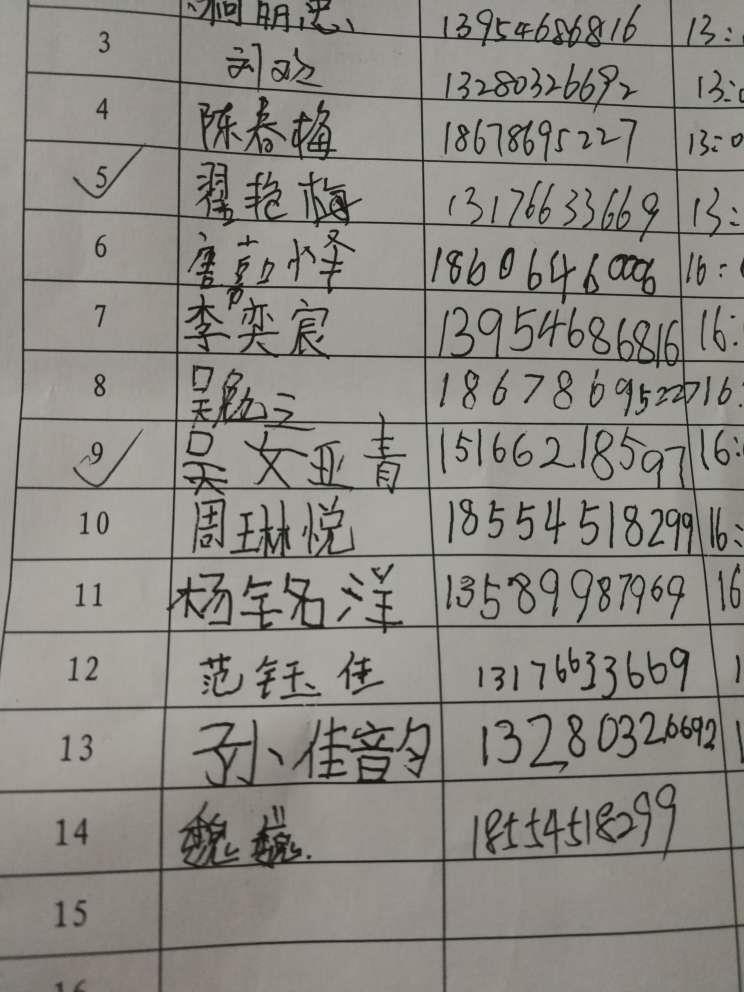 13954686816 13:
3 刘欢 13280326692 13:0
4 陈春梅 18678695227 13:0
5 翟艳梅 13176633669 13:
6 唐 怿 18606460006 16:0
7 李奕宸 13954686816 16:
8 吴 18678695227 16:
9 吴 青 15166218597 16:
10 周琳悦 18554518299 16:
11 杨 洋 13589987969 16
12 范钰佳 13176633669 1
13 孙佳 13280326692 1
14 魏巍 18554518299
15
16